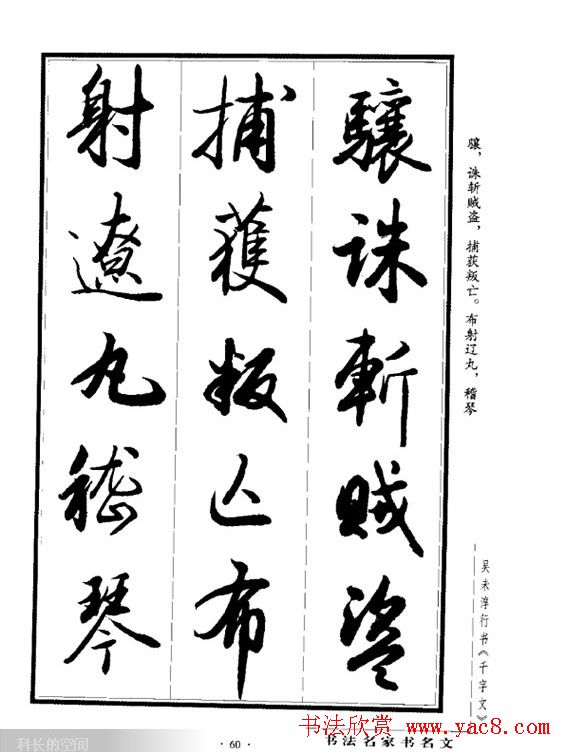 驤誅斬賊盜
捕獲叛亡布
射遼丸嵇琴
骧，诛斩贼盗，捕获叛亡。布射辽丸，稽琴
吴未淳行书《千字文》
书法名家书名文
· 60 ·
书法欣赏 www.yac8.com
科长的空间